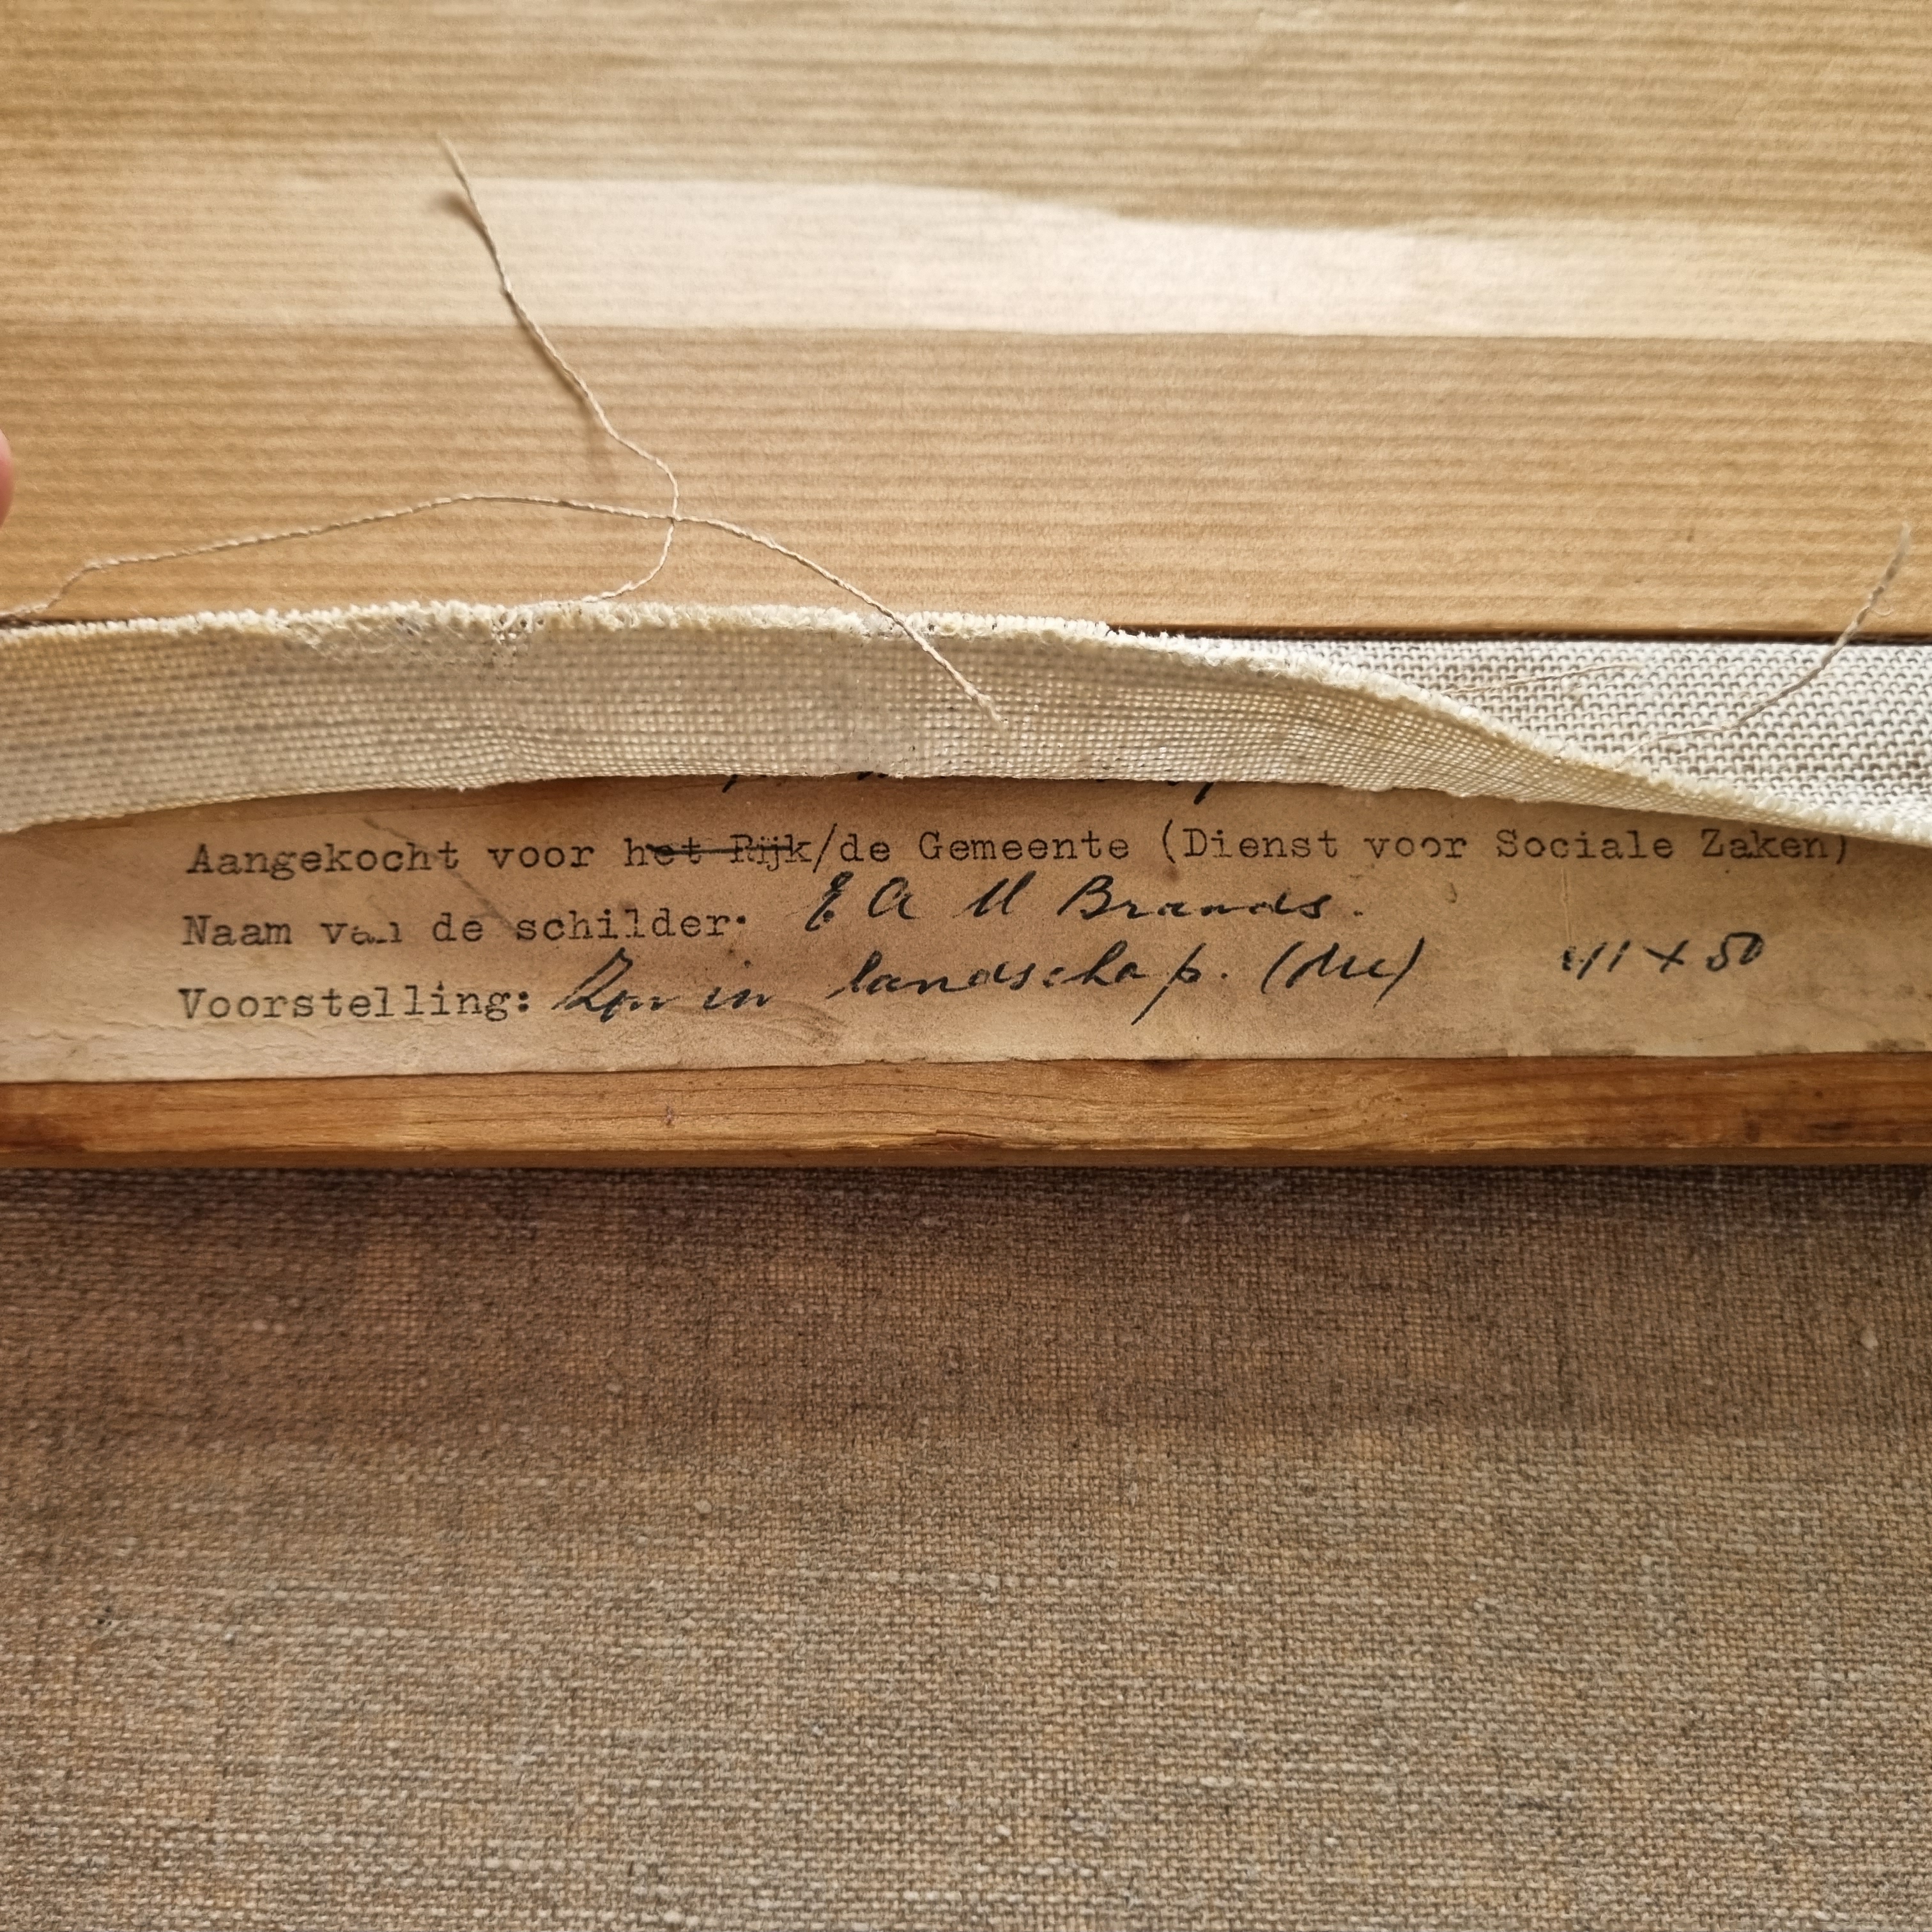 Aangekocht voor het Rijk/de Gemeente (Dienst voor Sociale Zaken)
Naam van de schilder: E A M Brands.
Voorstelling: Zon in landschap. 41 x 50